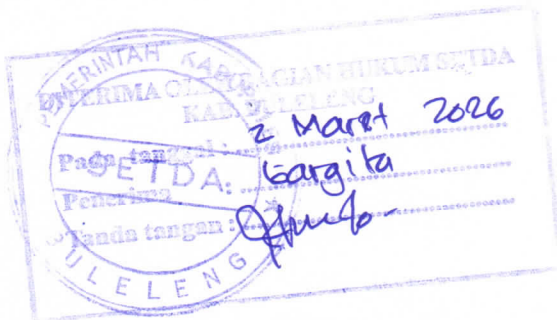 DITERIMA OLEH BAGIAN HUKUM SETDA
KAB. BULELENG
Pada tanggal : 2 Maret 2026
Penerima : Gargita
Tanda tangan :
PEMERINTAH KABUPATEN
SETDA
BULELENG